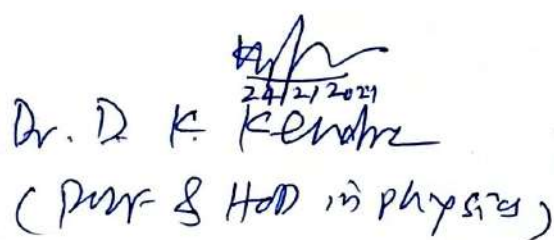 24/2/2021
Dr. D K Kendre
(Prof & HoD in physics)